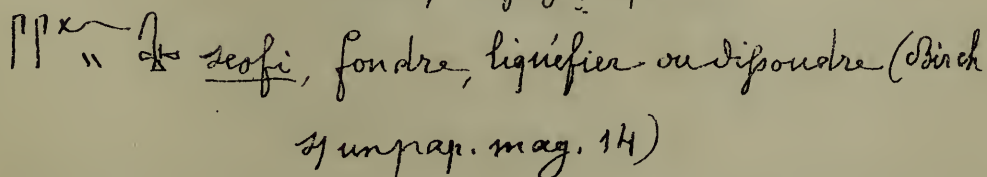 seofi, fondre, liquéfier ou dissoudre (Birch
un pap. mag. 14)